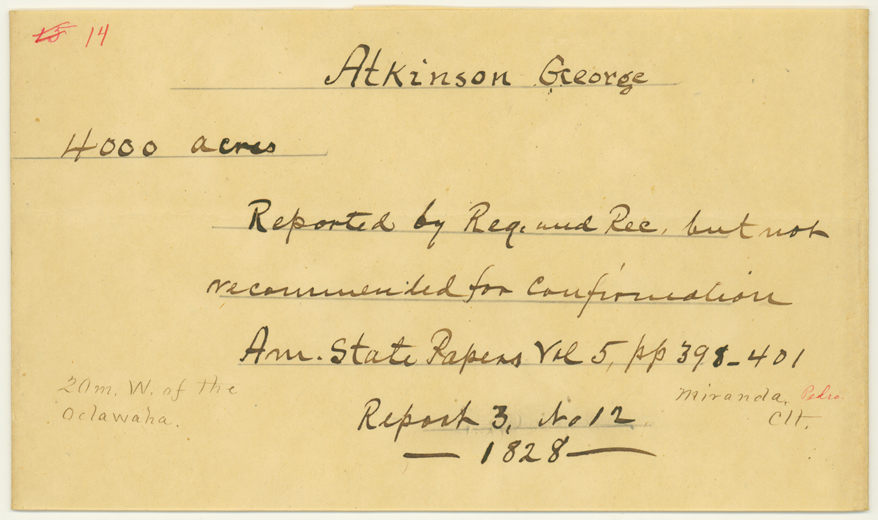 15 14
Atkinson George
4000 acres
Reported by Reg. and Rec. but not
recommended for Confirmation
Am. State Papers Vol 5, pp 398-401
20m. W. of the
Oclawaha.
Miranda, Pedro.
Clt.
Report 3, No 12
— 1828 —